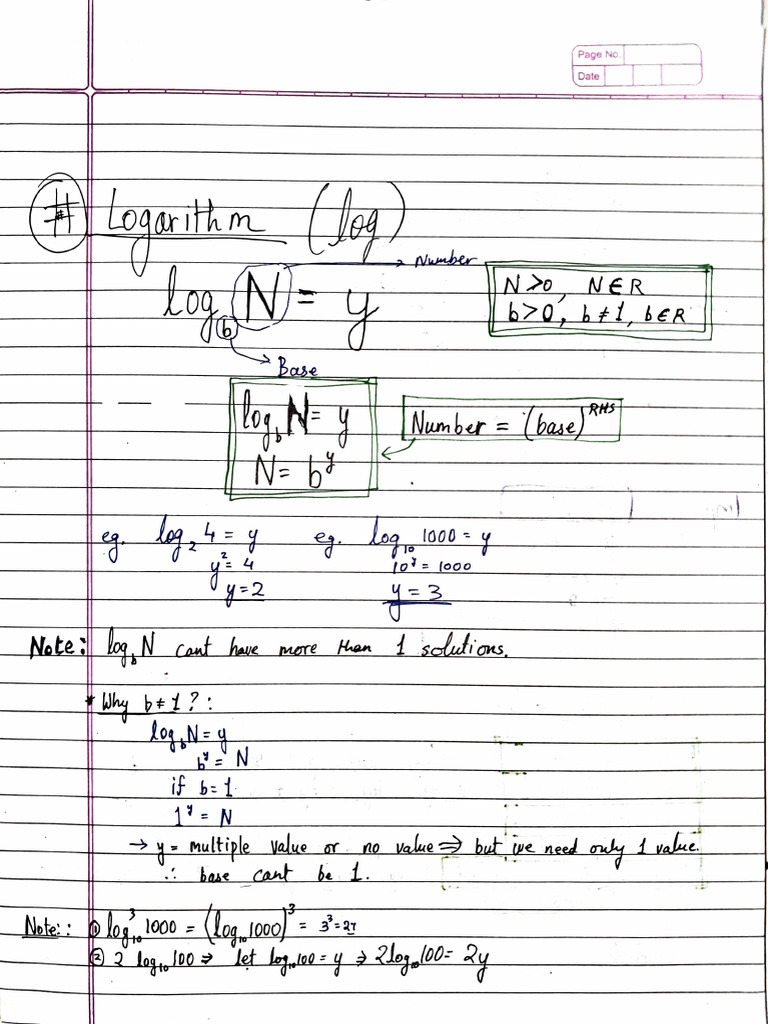 Page No.
Date
# Logarithm (log)
Number
log_b N = y
N>0, N∈R
b>0, b≠1, b∈R
Base
log_b N = y
N = b^y
Number = (base)^RHS
eg. log_2 4 = y
y^2 = 4
y = 2
eg. log_10 1000 = y
10^y = 1000
y = 3
Note: log_b N cant have more than 1 solutions.
* Why b≠1?:
log_b N = y
b^y = N
if b=1
1^y = N
→ y = multiple value or no value ⇒ but we need only 1 value.
∴ base cant be 1.
Note:: ① log^3_10 1000 = (log_10 1000)^3 = 3^3=27
② 2 log_10 100 ⇒ let log_10 100 = y ⇒ 2log_10 100 = 2y